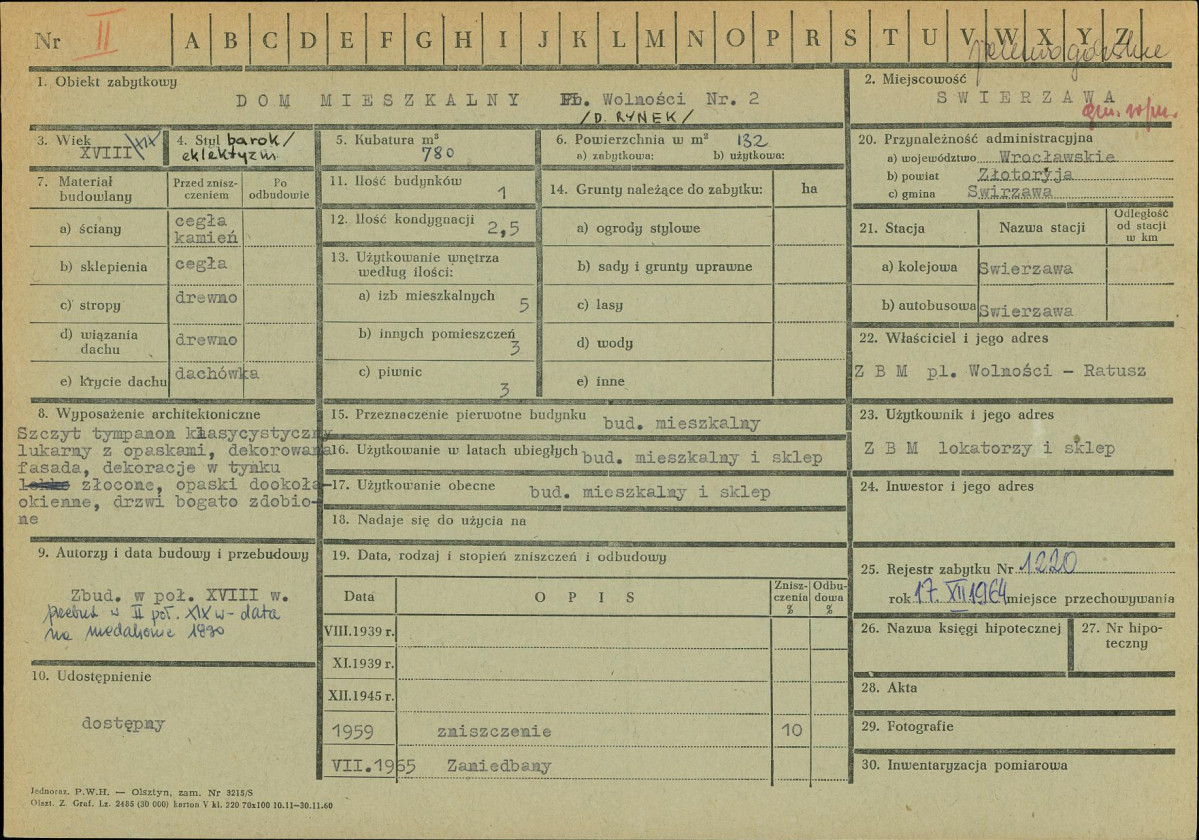 Nr II A B C D E F G H I J K L M N O P R S T U V W X Y Z
jeleniogórskie
1. Obiekt zabytkowy
DOM MIESZKALNY Pl. Wolności Nr. 2
/D. RYNEK/
2. Miejscowość
SWIERZAWA
gm. w/m.
3. Wiek
XVIII/XIX
4. Styl barok/
eklektyzm
5. Kubatura m³
780
6. Powierzchnia w m² 132
a) zabytkowa: b) użytkowa:
7. Materiał budowlany
Przed zniszczeniem
Po odbudowie
a) ściany cegła
kamień
b) sklepienia cegła
c) stropy drewno
d) wiązania dachu drewno
e) krycie dachu dachówka
8. Wyposażenie architektoniczne
Szczyt tympanon klasycystyczny
lukarny z opaskami, dekorowana
fasada, dekoracje w tynku
złocone, opaski dookoła-
okienne, drzwi bogato zdobio-
ne
9. Autorzy i data budowy i przebudowy
Zbud. w poł. XVIII w.
przebud. w II poł. XIX w - data
na medalionie 1890
10. Udostępnienie
dostępny
11. Ilość budynków
1
12. Ilość kondygnacji
2,5
13. Użytkowanie wnętrza
według ilości:
a) izb mieszkalnych
5
b) innych pomieszczeń
3
c) piwnic
3
14. Grunty należące do zabytku: ha
a) ogrody stylowe
b) sady i grunty uprawne
c) lasy
d) wody
e) inne
15. Przeznaczenie pierwotne budynku bud. mieszkalny
16. Użytkowanie w latach ubiegłych bud. mieszkalny i sklep
17. Użytkowanie obecne bud. mieszkalny i sklep
18. Nadaje się do użycia na
19. Data, rodzaj i stopień zniszczeń i odbudowy
Data OPIS Zniszczenia % Odbudowa %
VIII.1939 r.
XI.1939 r.
XII.1945 r.
1959 zniszczenie 10
VII.1965 Zaniedbany
20. Przynależność administracyjna
a) województwo Wrocławskie
b) powiat Złotoryja
c) gmina Swirzawa
21. Stacja Nazwa stacji Odległość od stacji w km
a) kolejowa Swierzawa
b) autobusowa Swierzawa
22. Właściciel i jego adres
Z B M pl. Wolności - Ratusz
23. Użytkownik i jego adres
Z B M lokatorzy i sklep
24. Inwestor i jego adres
25. Rejestr zabytku Nr 1220
rok 17. XII 1964 miejsce przechowywania
26. Nazwa księgi hipotecznej
27. Nr hipoteczny
28. Akta
29. Fotografie
30. Inwentaryzacja pomiarowa
Jednoraz. P.W.H. — Olsztyn, zam. Nr 3215/S
Olszt. Z. Graf. Lz. 2485 (30 000) karton V kl. 220 70x100 10.11—30.11.60